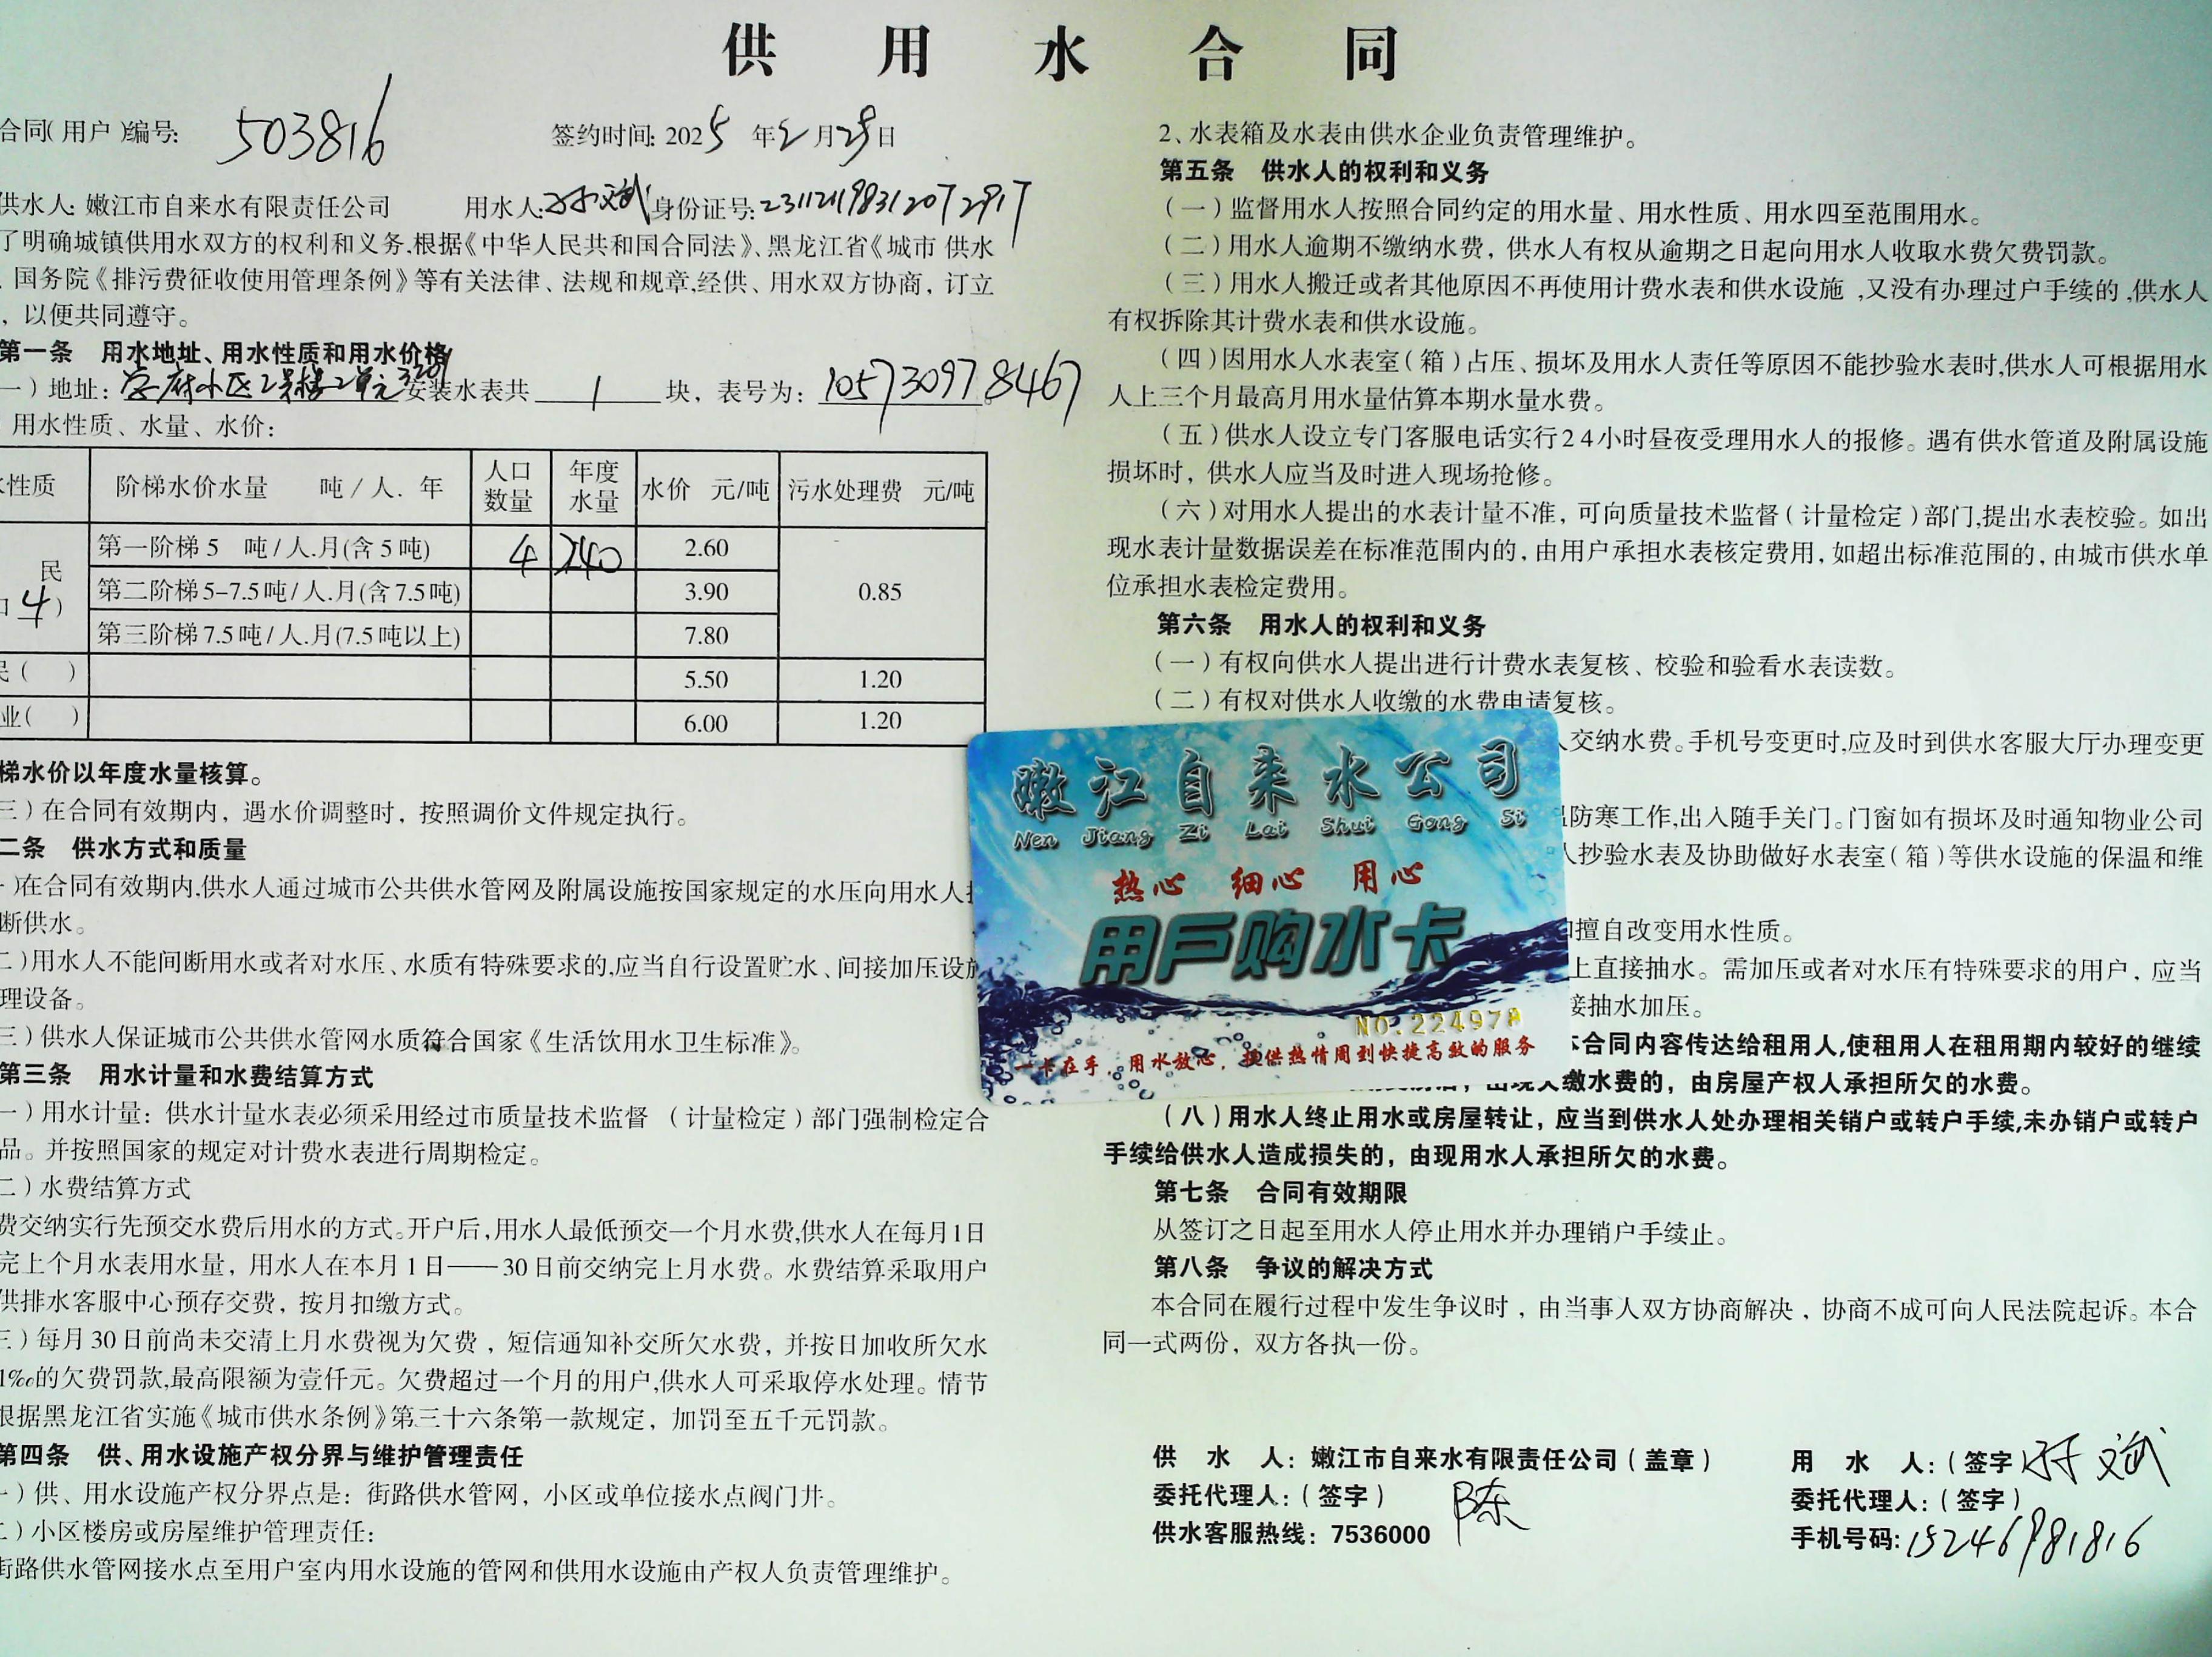 供用水合同
合同(用户)编号: 503816
签约时间: 2025年2月28日
供水人: 嫩江市自来水有限责任公司 用水人: 孙文斌 身份证号: 231121198312072917
了明确城镇供用水双方的权利和义务,根据《中华人民共和国合同法》、黑龙江省《城市 供水
、国务院《排污费征收使用管理条例》等有关法律、法规和规章,经供、用水双方协商，订立
，以便共同遵守。
第一条 用水地址、用水性质和用水价格
一）地址：学府小区2号楼2单元3201 安装水表共 1 块，表号为：105730978467。
用水性质、水量、水价：
性质 阶梯水价水量 吨/人.年 人口数量 年度水量 水价 元/吨 污水处理费 元/吨
民
口4）
第一阶梯5 吨/人.月(含5吨) 4 240 2.60
第二阶梯5-7.5吨/人.月(含7.5吨) 3.90 0.85
第三阶梯7.5吨/人.月(7.5吨以上) 7.80
民（ ） 5.50 1.20
业( ) 6.00 1.20
梯水价以年度水量核算。
三）在合同有效期内，遇水价调整时，按照调价文件规定执行。
二条 供水方式和质量
）在合同有效期内,供水人通过城市公共供水管网及附属设施按国家规定的水压向用水人
断供水。
二）用水人不能间断用水或者对水压、水质有特殊要求的,应当自行设置贮水、间接加压设施
理设备。
三）供水人保证城市公共供水管网水质符合国家《生活饮用水卫生标准》。
第三条 用水计量和水费结算方式
一）用水计量：供水计量水表必须采用经过市质量技术监督（计量检定）部门强制检定合
品。并按照国家的规定对计费水表进行周期检定。
二）水费结算方式
费交纳实行先预交水费后用水的方式。开户后,用水人最低预交一个月水费,供水人在每月1日
完上个月水表用水量，用水人在本月1日——30日前交纳完上月水费。水费结算采取用户
供排水客服中心预存交费，按月扣缴方式。
三）每月30日前尚未交清上月水费视为欠费，短信通知补交所欠水费，并按日加收所欠水
1‰的欠费罚款,最高限额为壹仟元。欠费超过一个月的用户,供水人可采取停水处理。情节
根据黑龙江省实施《城市供水条例》第三十六条第一款规定，加罚至五千元罚款。
第四条 供、用水设施产权分界与维护管理责任
一）供、用水设施产权分界点是：街路供水管网，小区或单位接水点阀门井。
二）小区楼房或房屋维护管理责任：
街路供水管网接水点至用户室内用水设施的管网和供用水设施由产权人负责管理维护。
2、水表箱及水表由供水企业负责管理维护。
第五条 供水人的权利和义务
（一）监督用水人按照合同约定的用水量、用水性质、用水四至范围用水。
（二）用水人逾期不缴纳水费，供水人有权从逾期之日起向用水人收取水费欠费罚款。
（三）用水人搬迁或者其他原因不再使用计费水表和供水设施，又没有办理过户手续的,供水人
有权拆除其计费水表和供水设施。
（四）因用水人水表室（箱）占压、损坏及用水人责任等原因不能抄验水表时,供水人可根据用水
人上三个月最高月用水量估算本期水量水费。
（五）供水人设立专门客服电话实行24小时昼夜受理用水人的报修。遇有供水管道及附属设施
损坏时，供水人应当及时进入现场抢修。
（六）对用水人提出的水表计量不准，可向质量技术监督（计量检定）部门,提出水表校验。如出
现水表计量数据误差在标准范围内的，由用户承担水表核定费用，如超出标准范围的，由城市供水单
位承担水表检定费用。
第六条 用水人的权利和义务
（一）有权向供水人提出进行计费水表复核、校验和验看水表读数。
（二）有权对供水人收缴的水费申请复核。
交纳水费。手机号变更时,应及时到供水客服大厅办理变更
防寒工作,出入随手关门。门窗如有损坏及时通知物业公司
人抄验水表及协助做好水表室（箱）等供水设施的保温和维
擅自改变用水性质。
上直接抽水。需加压或者对水压有特殊要求的用户，应当
接抽水加压。
本合同内容传达给租用人,使租用人在租用期内较好的继续
缴水费的，由房屋产权人承担所欠的水费。
（八）用水人终止用水或房屋转让，应当到供水人处办理相关销户或转户手续,未办销户或转户
手续给供水人造成损失的，由现用水人承担所欠的水费。
第七条 合同有效期限
从签订之日起至用水人停止用水并办理销户手续止。
第八条 争议的解决方式
本合同在履行过程中发生争议时，由当事人双方协商解决，协商不成可向人民法院起诉。本合
同一式两份，双方各执一份。
供 水 人：嫩江市自来水有限责任公司（盖章）
委托代理人：（签字） 陈
供水客服热线：7536000
用 水 人：（签字） 孙文斌
委托代理人：（签字）
手机号码：15246981816
嫩江自来水公司
Nen Jiang Zi Lai Shui Gong Si
热心 细心 用心
用户购水卡
NO.224978
一卡在手，用水放心，提供热情周到快捷高效的服务